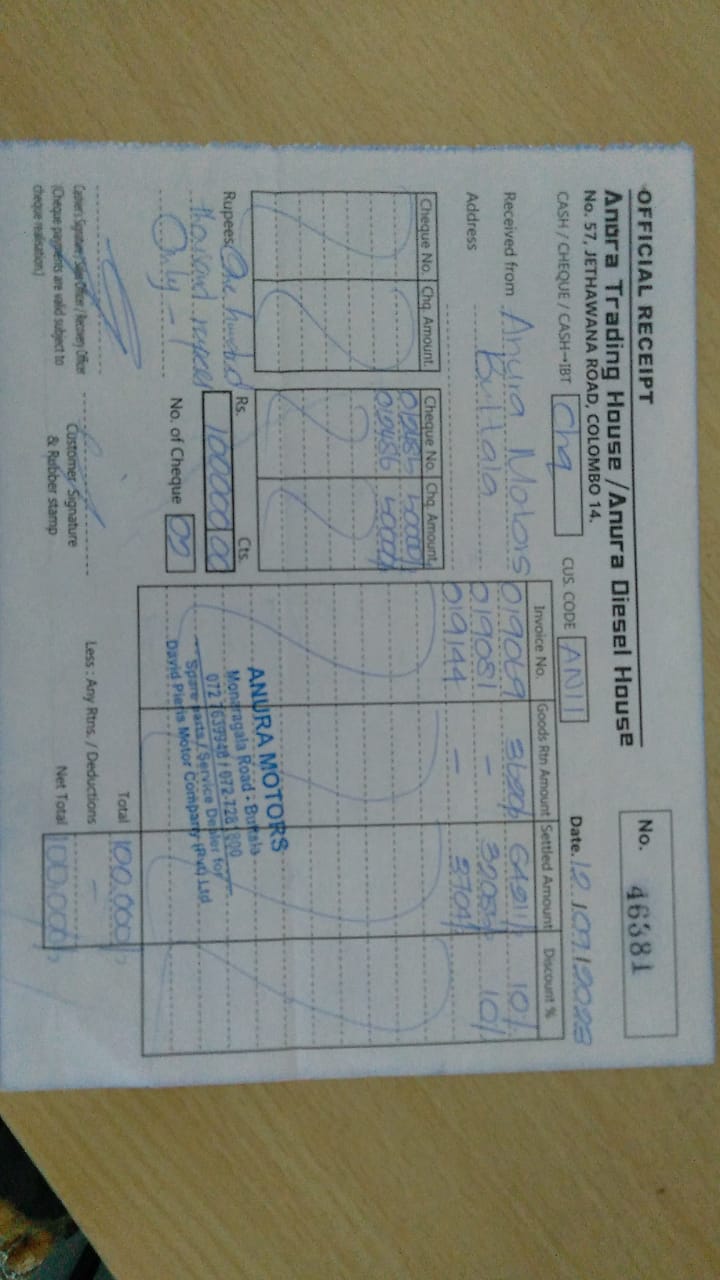 OFFICIAL RECEIPT
No. 46381
Anura Trading House / Anura Diesel House
No. 57, JETHAWANA ROAD, COLOMBO 14.
CASH / CHEQUE / CASH→IBT Chq CUS. CODE AN11 Date.
Received from Anura Motors
Address Buttala
Cheque No. Chq. Amount. Cheque No. Chq. Amount.
Invoice No. Goods Rtn Amount Settled Amount Discount %
019069 10%
019081 - 10%
019144 -
Rupees One hundred
thousand rupees
Only -
Rs. Cts.
100000 00
No. of Cheque
ANURA MOTORS
Monaragala Road - Buttala
Spare parts / Service Dealer for
David Pieris Motor Company (Pvt) Ltd
Total 100,000/-
Less : Any Rtns. / Deductions -
Net Total 100,000/-
Cashier's Signature / Sales Officer / Recovery Officer
(Cheque payments are valid subject to
cheque realisation.)
Customer Signature
& Rubber stamp